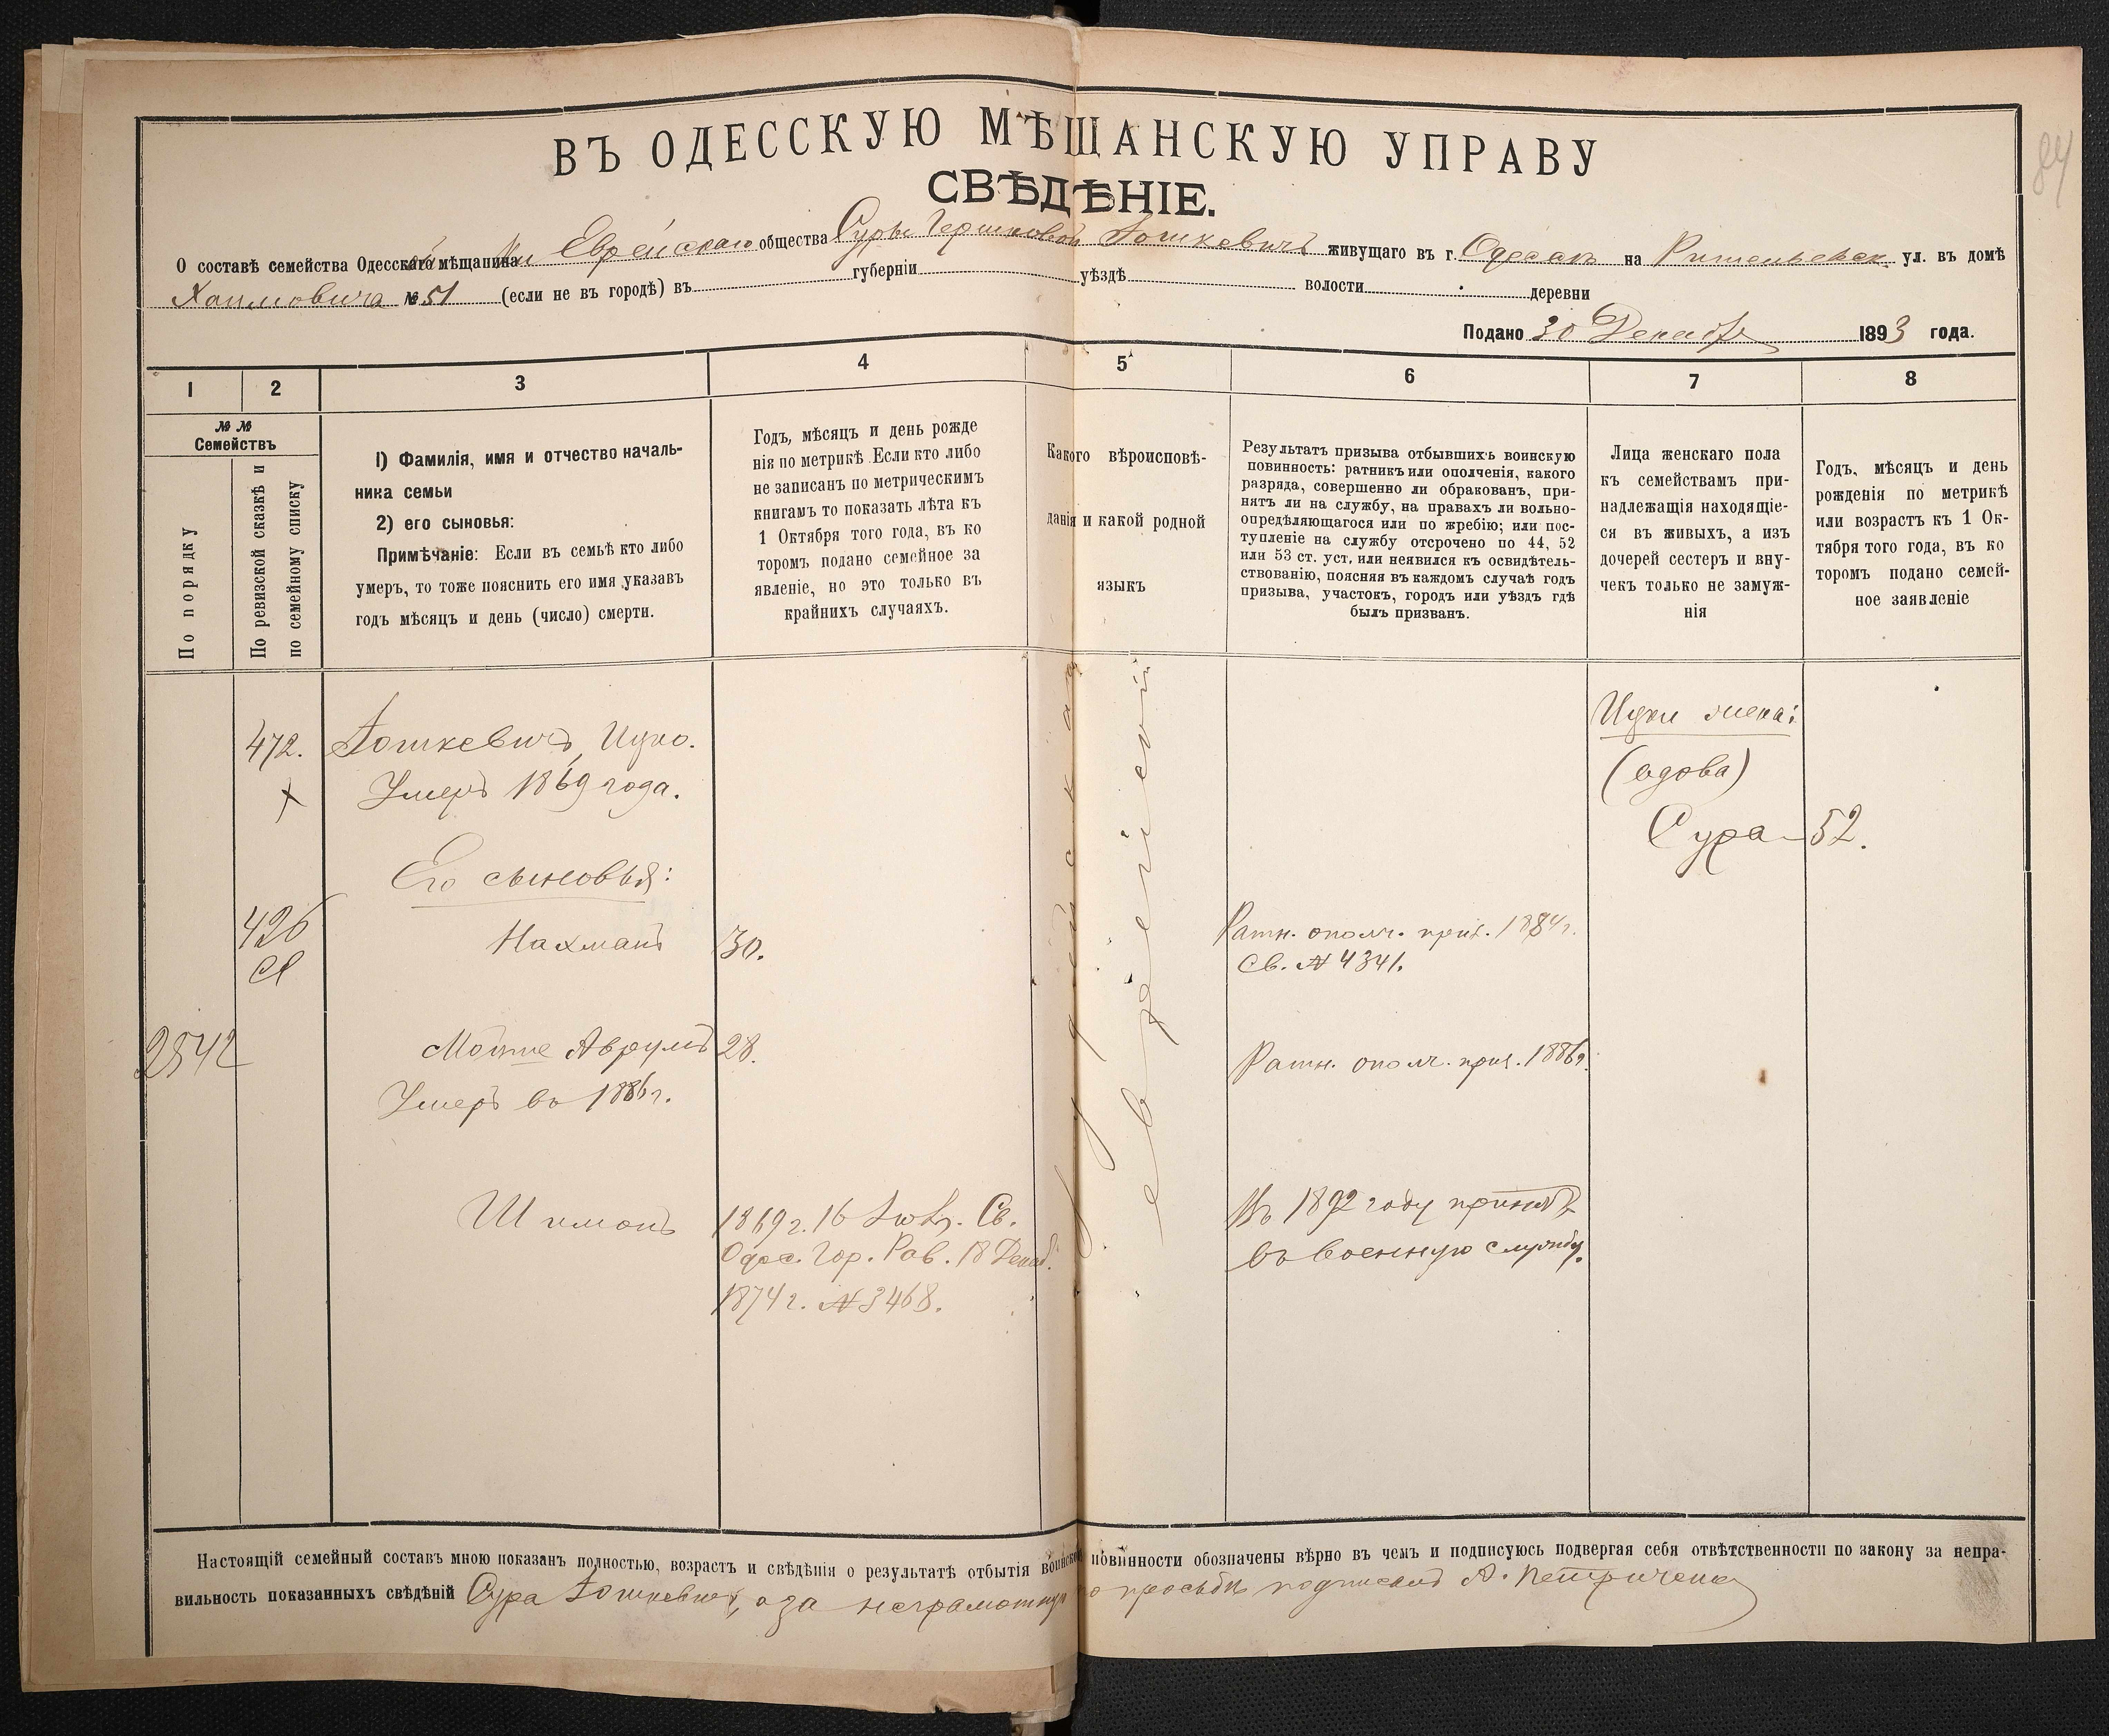 84
ВЪ ОДЕССКУЮ МѢЩАНСКУЮ УПРАВУ
СВѢДѢНІЕ.
О составѣ семейства Одесскаго мѣщанина Еврейскаго общества Суры Гершковой Іошкевичъ живущаго въ г. Одессѣ на Ришельевск. ул. въ домѣ
Хаимовича № 51 (если не въ городѣ) въ губерніи уѣздѣ волости деревни
Подано 30 Декабр 1893 года.
1 2 3 4 5 6 7 8
№ №
Семействъ
По порядку
По ревизской сказкѣ и
по семейному списку
1) Фамилія, имя и отчество началь-
ника семьи
2) его сыновья:
Примѣчаніе: Если въ семьѣ кто либо
умеръ, то тоже пояснить его имя указавъ
годъ мѣсяцъ и день (число) смерти.
Годъ, мѣсяцъ и день рожде
нія по метрикѣ Если кто либо
не записанъ по метрическимъ
книгамъ то показать лѣта къ
1 Октября того года, въ ко
торомъ подано семейное за
явленіе, но это только въ
крайнихъ случаяхъ.
Какого вѣроисповѣ-
данія и какой родной
языкъ
Результатъ призыва отбывшихъ воинскую
повинность: ратникъ или ополченія, какого
разряда, совершенно ли обракованъ, при-
нятъ ли на службу, на правахъ ли вольно-
опредѣляющагося или по жребію; или пос-
тупленіе на службу отсрочено по 44, 52
или 53 ст. уст. или неявился къ освидѣтель-
ствованію, поясняя въ каждомъ случаѣ годъ
призыва, участокъ, городъ или уѣздъ гдѣ
былъ призванъ.
Лица женскаго пола
къ семействамъ при-
надлежащія находящіе-
ся въ живыхъ, а изъ
дочерей сестеръ и вну-
чекъ только не замуж-
нія
Годъ, мѣсяцъ и день
рожденія по метрикѣ
или возрастъ къ 1 Ок-
тября того года, въ ко
торомъ подано семей-
ное заявленіе
472. Іошкевичъ, Ицко.
Умеръ 1869 года.
Ицки жена:
(вдова)
Сура 52.
Его сыновья:
426 Нахманъ 30. Ратн. ополч. приз. 1884 г.
Св. № 4341.
2542 Мотте Аврумъ 28. Ратн. ополч. приз. 1886 г.
Умеръ въ 1886 г.
Шимонъ 1869 г. 16 Св. Въ 1892 году принятъ
Одес. Гор. Рав. 18 Декаб. въ военную службу.
1874 г. № 3468.
іудейская
еврейскій
Настоящій семейный составъ мною показанъ полностью, возрастъ и свѣдѣнія о результатѣ отбытія воинской повинности обозначены вѣрно въ чемъ и подписуюсь подвергая себя отвѣтственности по закону за непра-
вильность показанныхъ свѣдѣній Сура Іошкевичъ, а за неграмотную по просьбѣ подписалъ А. Петриченко